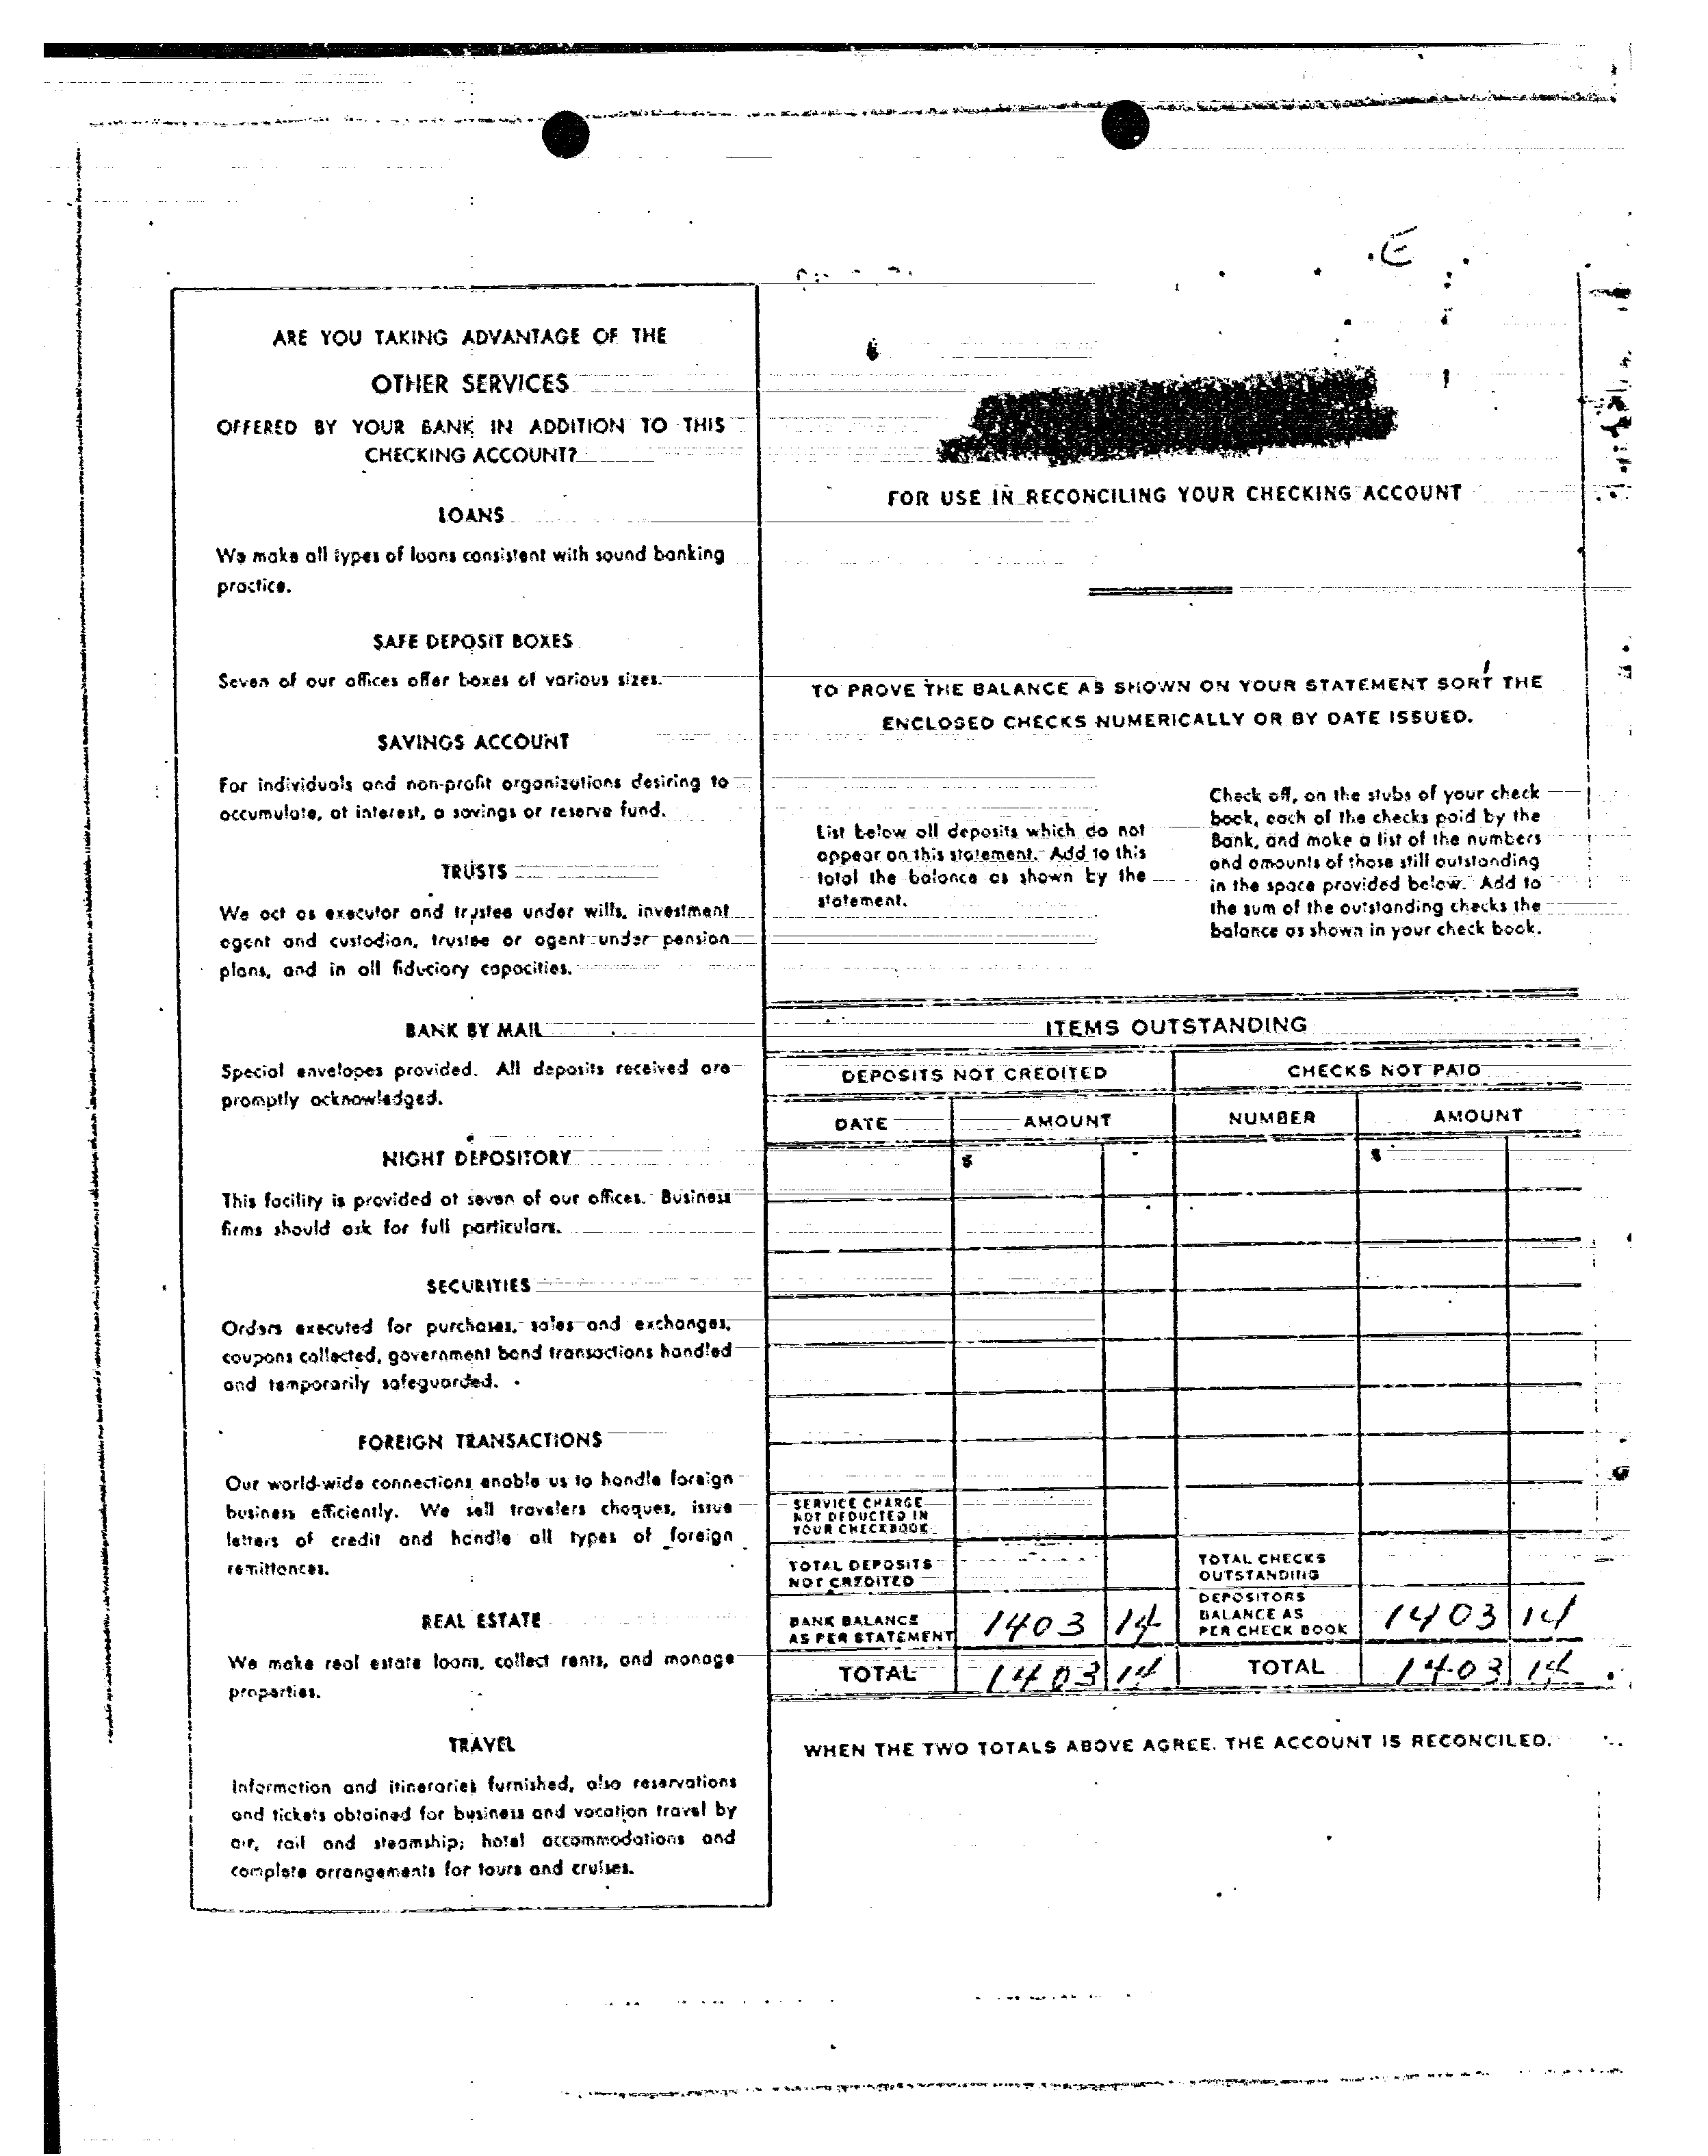 E
ARE YOU TAKING ADVANTAGE OF THE
OTHER SERVICES
OFFERED BY YOUR BANK IN ADDITION TO THIS
CHECKING ACCOUNT?
LOANS
We make all types of loans consistent with sound banking
practice.
SAFE DEPOSIT BOXES
Seven of our offices offer boxes of various sizes.
SAVINGS ACCOUNT
For individuals and non-profit organizations desiring to
accumulate, at interest, a savings or reserve fund.
TRUSTS
We act as executor and trustee under wills, investment
agent and custodian, trustee or agent under pension
plans, and in all fiduciary capacities.
BANK BY MAIL
Special envelopes provided. All deposits received are
promptly acknowledged.
NIGHT DEPOSITORY
This facility is provided at seven of our offices. Business
firms should ask for full particulars.
SECURITIES
Orders executed for purchases, sales and exchanges,
coupons collected, government bond transactions handled
and temporarily safeguarded.
FOREIGN TRANSACTIONS
Our world-wide connections enable us to handle foreign
business efficiently. We sell travelers cheques, issue
letters of credit and handle all types of foreign
remittances.
REAL ESTATE
We make real estate loans, collect rents, and manage
properties.
TRAVEL
Information and itineraries furnished, also reservations
and tickets obtained for business and vacation travel by
air, rail and steamship; hotel accommodations and
complete arrangements for tours and cruises.
FOR USE IN RECONCILING YOUR CHECKING ACCOUNT
TO PROVE THE BALANCE AS SHOWN ON YOUR STATEMENT SORT THE
ENCLOSED CHECKS NUMERICALLY OR BY DATE ISSUED.
List below all deposits which do not
appear on this statement. Add to this
total the balance as shown by the
statement.
Check off, on the stubs of your check
book, each of the checks paid by the
Bank, and make a list of the numbers
and amounts of those still outstanding
in the space provided below. Add to
the sum of the outstanding checks the
balance as shown in your check book.
ITEMS OUTSTANDING
DEPOSITS NOT CREDITED CHECKS NOT PAID
DATE AMOUNT NUMBER AMOUNT
$ $
SERVICE CHARGE
NOT DEDUCTED IN
YOUR CHECKBOOK
TOTAL DEPOSITS
NOT CREDITED
TOTAL CHECKS
OUTSTANDING
BANK BALANCE
AS PER STATEMENT 1403 14
DEPOSITORS
BALANCE AS
PER CHECK BOOK 1403 14
TOTAL 1403 14 TOTAL 1403 14
WHEN THE TWO TOTALS ABOVE AGREE, THE ACCOUNT IS RECONCILED.